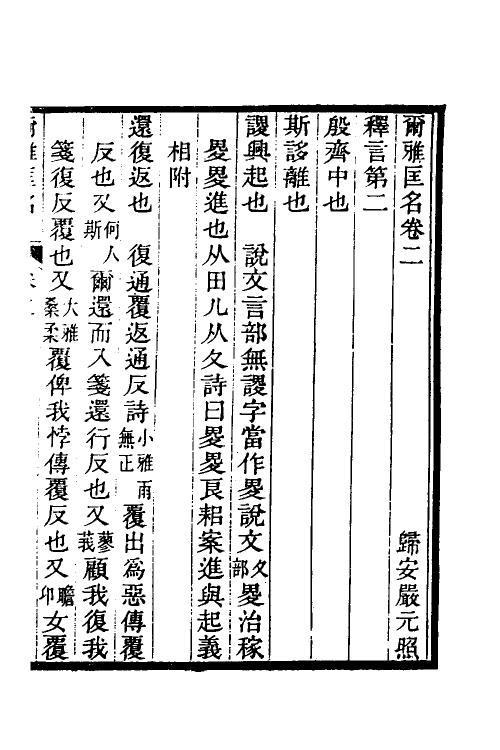 爾雅匡名卷二
歸安嚴元照
釋言第二
殷齊中也
斯誃離也
謖興起也　說文言部無謖字當作畟說文夊部畟治稼
畟畟進也从田儿从夊詩曰畟畟良耜案進與起義
相附
還復返也　復通覆返通反詩小雅雨無正覆出爲惡傳覆
反也又何人斯爾還而入箋還行反也又蓼莪顧我復我
箋復反覆也又大雅桑柔覆俾我悖傳覆反也又瞻卬女覆